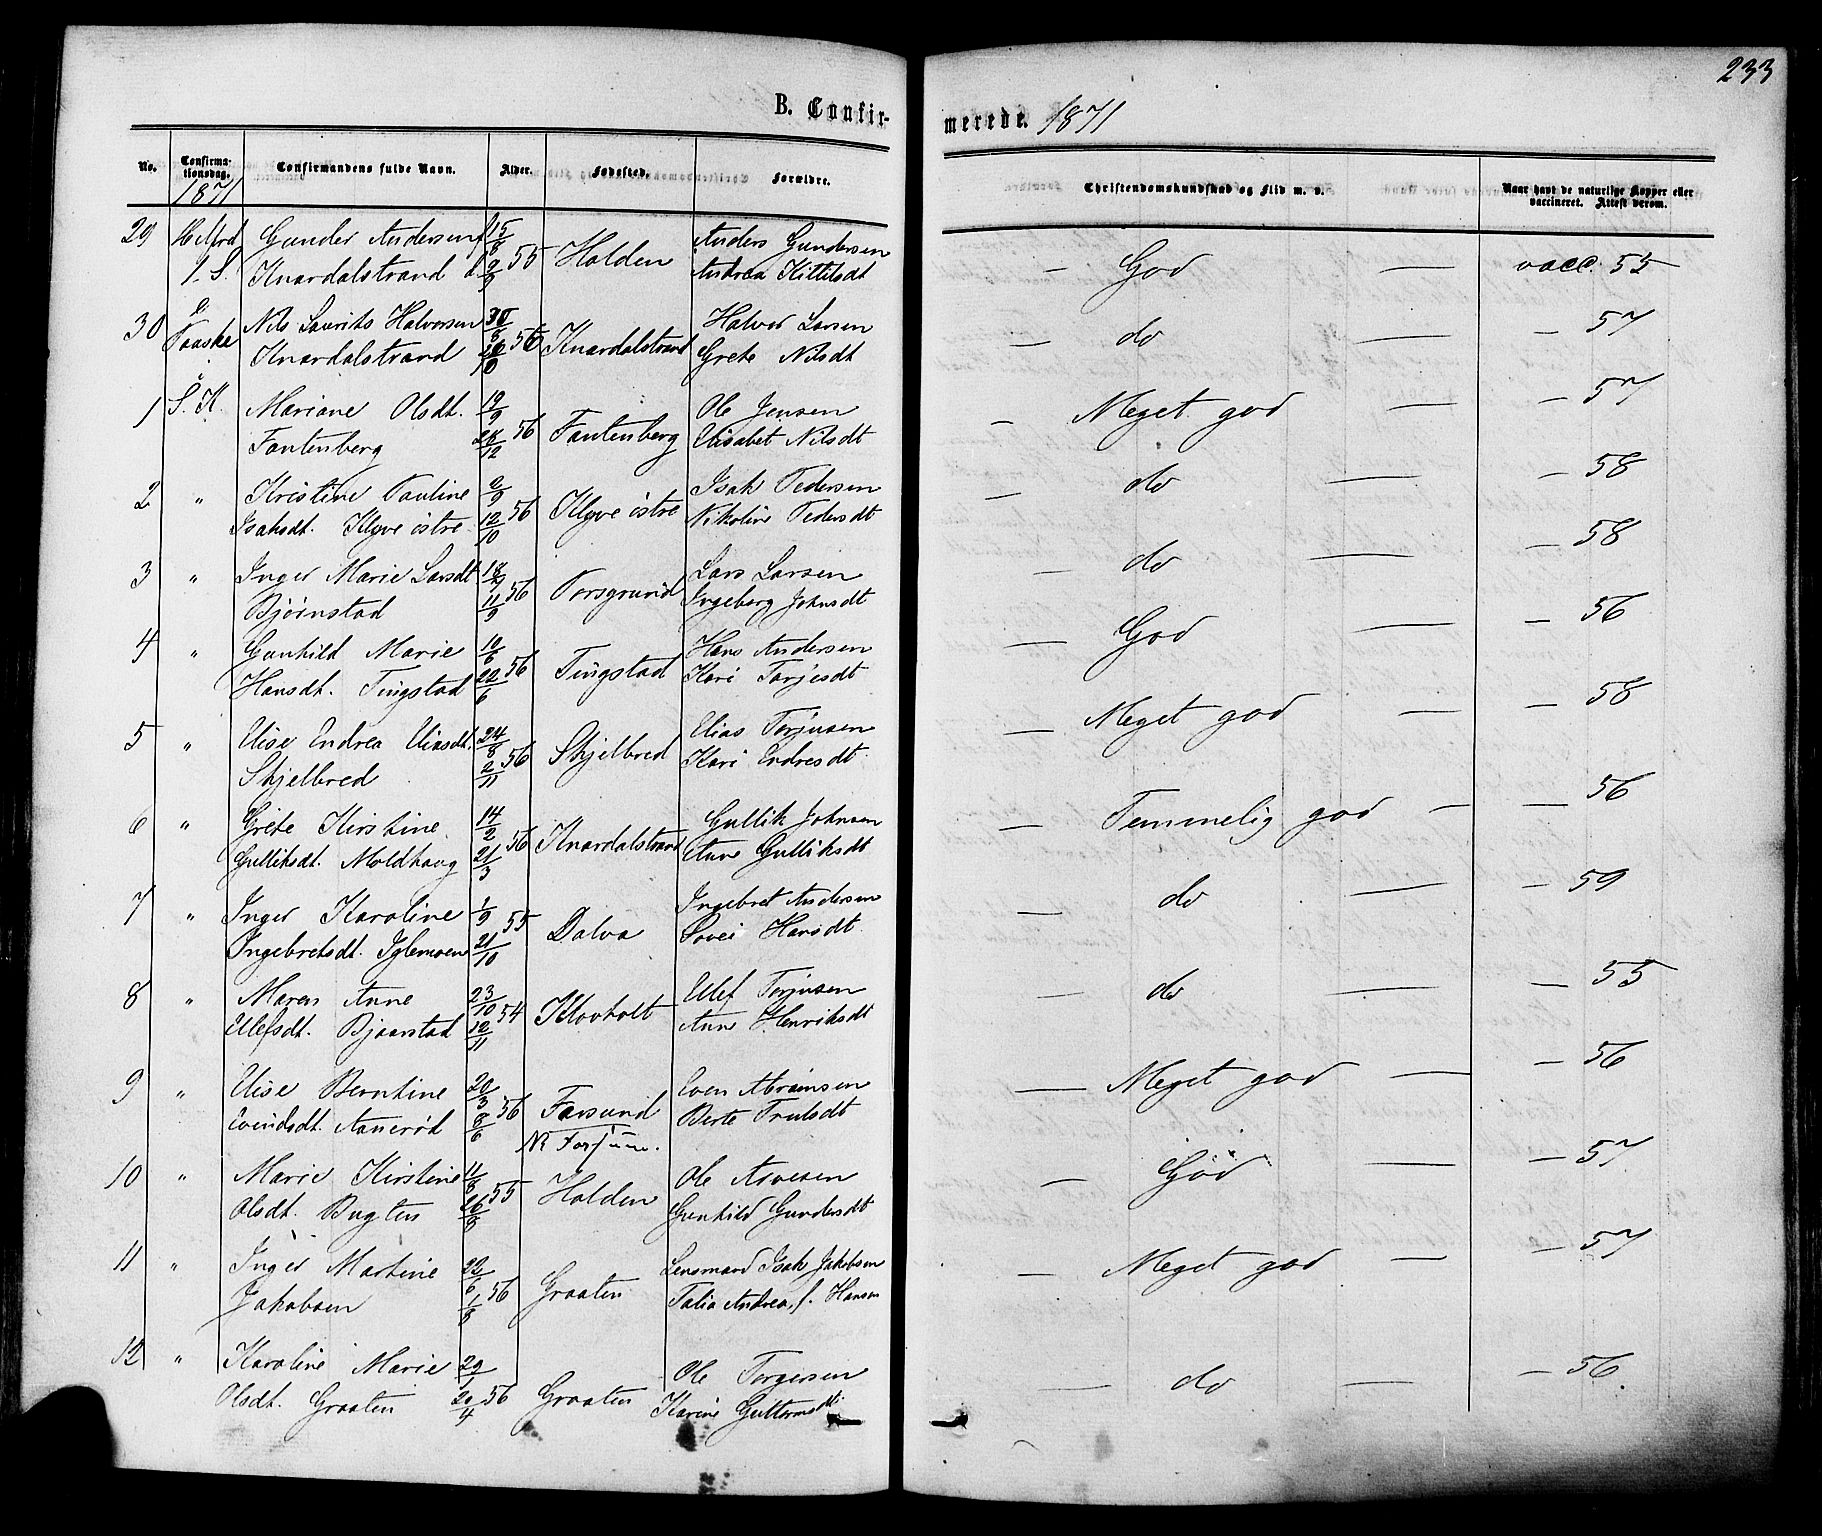 233
B. Confir-
merede. 1871
No.
Confirma-
tionsdag.
1871
Confirmandens fulde Navn.
Alder.
Fødested.
Forældre.
Christendomskundskab og Flid m. v.
Naar havt de naturlige Kopper eller
vaccineret. Attest derom.
29 Gunder Andersen f. 15/8 Anders Gundersen
1. S. Knardalstrand d. 2/9 55 Holden Andrea Kittilsdt — God — vacc. 55
30 e. Nils Laurits Halvorsen 30/8 Halvor Larsen
Paaske Knardalstrand 26/10 56 Knardalstrand Grete Nilsdt — do — — 57
1 S. K. Mariane Olsdt. 19/9 Ole Jensen
Fantenberg 28/12 56 Fantenberg Elisabet Nilsdt — Meget god — — 57
2 " Kristine Pauline 2/9 Isak Pedersen
Isaksdt. Klyve østre 12/10 56 Klyve østre Nikoline Pedersdt — do — — 58
3 " Inger Marie Larsdt 18/7 Lars Larsen
Bjørnstad 11/9 56 Porsgrund Ingeborg Johnsdt — do — — 58
4 " Gunhild Marie 10/6 Hans Andersen
Hansdt. Tingstad 22/6 56 Tingstad Kari Torjesdt — God — — 56
5 " Elise Endrea Eliasdt. 24/8 Elias Torjusen
Skjelbred 2/11 56 Skjelbred Kari Endresdt — Meget god — — 58
6 " Grete Kirstine 14/2 Gullik Johnsen
Gulliksdt. Moldhaug 21/3 56 Knardalstrand Anne Gulliksdt — Temmelig god — — 56
7 " Inger Karoline 1/9 Ingebret Andersen
Ingebretsdt. Iglemoen 21/10 55 Dalva Hansdt — do — — 59
8 " Maren Anne 23/10 Ellef Torjusen
Ellefsdt. Bjaarstad 12/11 54 Klovholt Anne Henriksdt — do — — 55
9 " Elise Berntine 20/3 Even Abramsen
Evendsdt. Aanerød 8/6 56 Farsund Berte Trulsdt — Meget god — — 56
10 " Marie Kirstine 11/8 Ole Arvesen
Olsdt. Bugten 26/8 55 Holden Gunhild Gundersdt — God — — 57
11 " Inger Martine 22/6 Lensmand Isak Jakobsen
Jakobsen 1/8 56 Graaten Talia Andrea, f. Hansen — Meget god — — 57
12 " Karoline Marie 29/1 Ole Torgersen
Olsdt. Graaten 20/4 56 Graaten Karine Guttormsdt. — do — — 56.